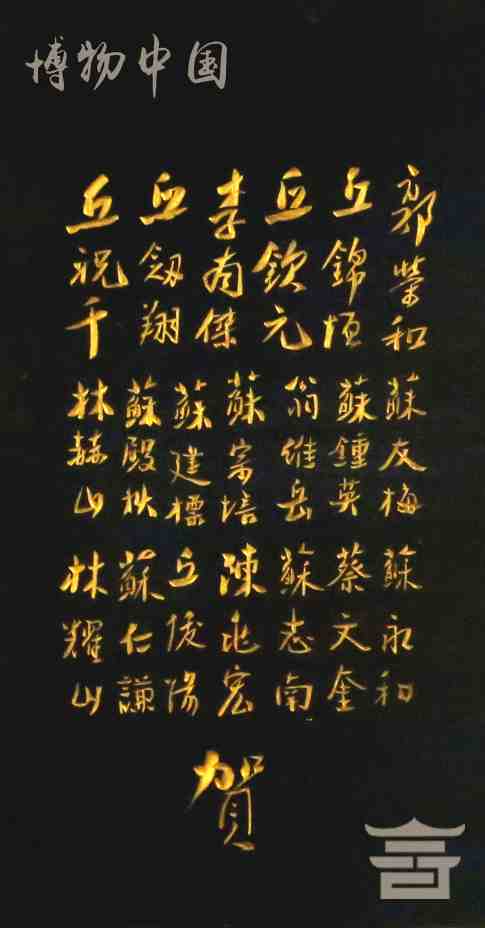 博物中国
郭榮和
丘錦恒
丘欽元
李有傑
丘劔翔
丘祝千
蘇友梅
蘇鍾英
翁維岳
蘇宗培
蘇建標
蘇殿秋
林赫山
蘇永和
蔡文奎
蘇志南
陳兆宏
丘俊陽
蘇仁謙
林耀山
賀